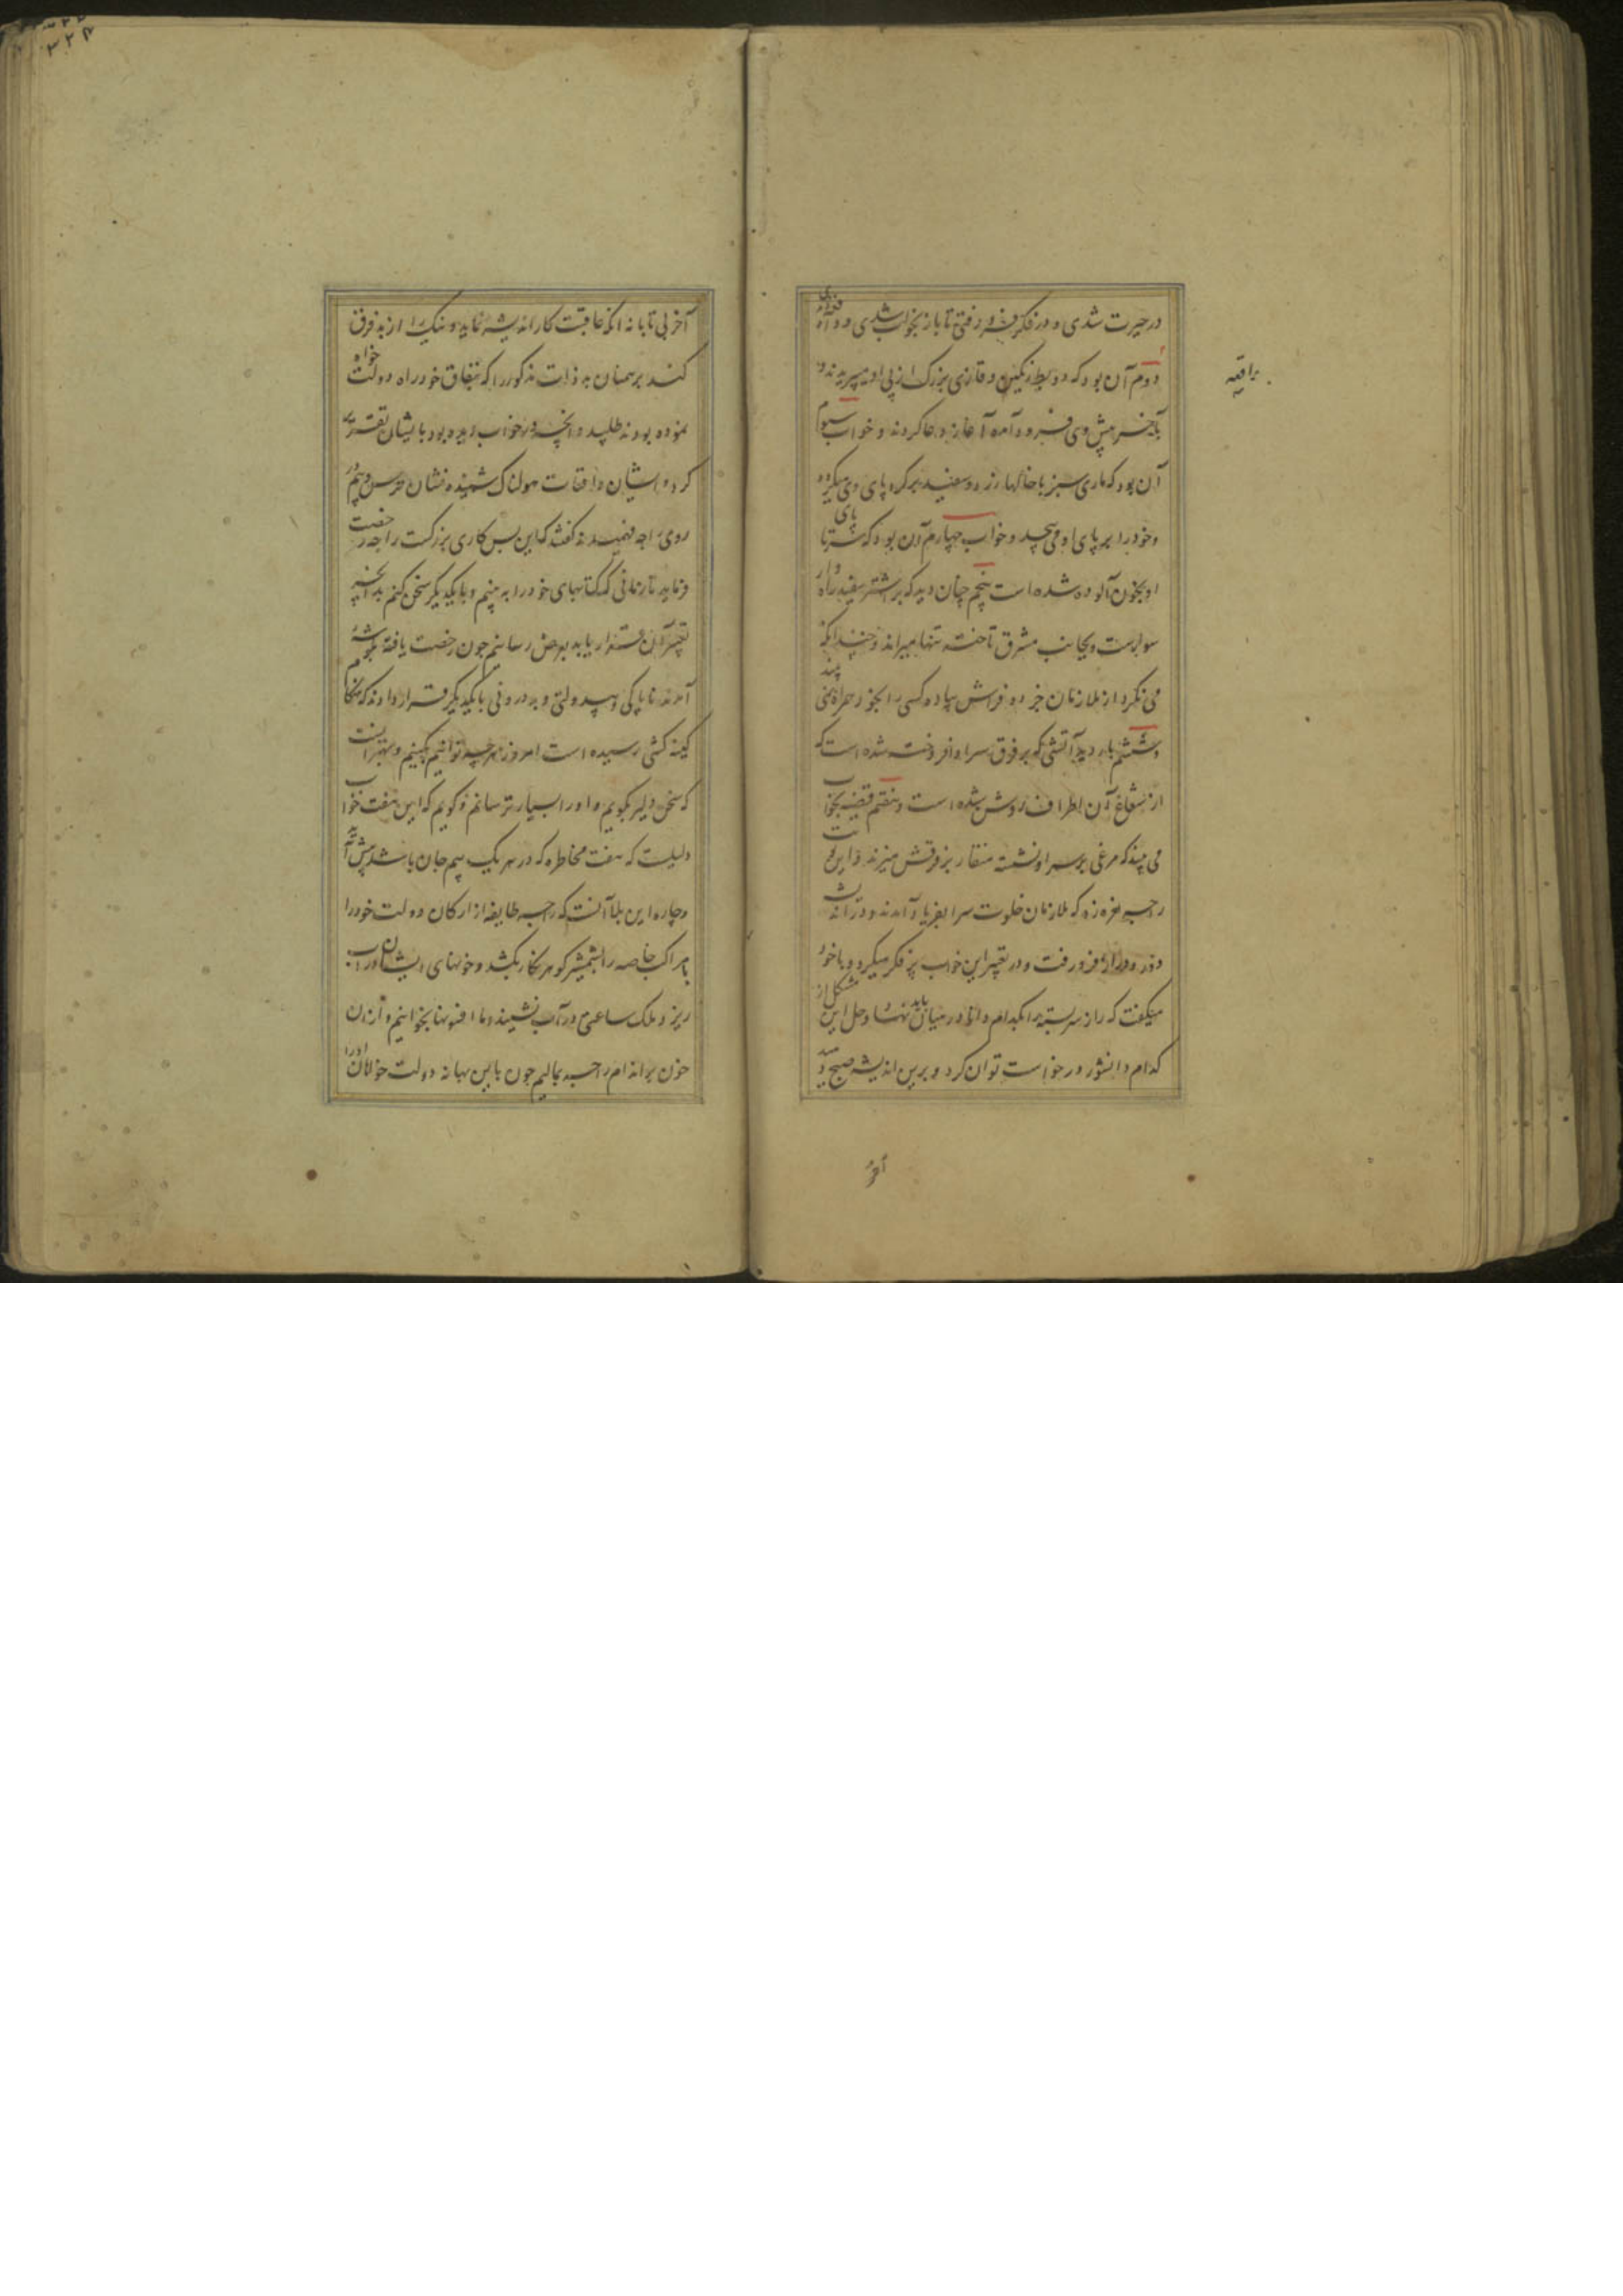 در حیرت شدی و در فکر فرو رفتی تا باز بخواب شدی و واقعه
دوم آن بود که دو بط رنگین و قازی بزرگ از پی او میپریدند و
بآخر پیش وی فرود آمده آغاز دعا کردند و خواب سیوم
آن بود که ماری سبز با خالهای زرد و سفید بر گرد پای وی میگردد
و خود را بر پای او می پیچد و خواب چهارم آن بود که سر تا پای
او بخون آلوده شده است پنجم چنان دید که بر اشتر سفید راهوار
سوارست و بجانب مشرق تاخته تنها میراند و چندانکه
می نگرد از ملازمان جز دو فراش پیاده کسی را بخود همراه نمی بیند
و ششم بار دید آتشی که بر فرق سر او افروخته شده است که
از شعاع آن اطراف روشن شده است و هفتم قضیه بخواب
می بیند که مرغی بر سر او نشسته منقار بر فرقش میزند و این نوبت
راجه نعره زد که ملازمان خلوت سرا بفریاد آمدند و در اندیشه
دور و دراز فرو رفت و در تعبیر این خواب پر فکر میکرد و با خود
میگفت که راز سربسته را بکدام دانا در میان باید نهاد و حل این مشکل از
کدام دانشور درخواست توان کرد و برین اندیشه صبح دمید
واقعه
آخر
آخر بی تابانه آنکه عاقبت کار اندیشه نماید و نیک را از بد فرق
کند برهمنان بد ذات مذکور را که بنفاق خود را دولت خواه
نموده بودند طلبید و آنچه در خواب دیده بود با ایشان تقریر
کرد و ایشان واقعات هولناک شنیده نشان ترس و بیم در
روی راجه فهمیدند گفتند که این بس کاری بزرگست راجه رخصت
فرماید تا زمانی که کتابهای خود را به بینیم و با یکدیگر سخن کنیم بدانچه
تعبیر آن قرار یابد بعرض رسانیم چون رخصت یافته بگوشه
آمدند ناپاکی و بیدولتی و بد درونی با یکدیگر قرار دادند که هنگام
کینه کشی رسیده است امروز هرچه توانیم بکنیم و بهتر آنست
که سخن دلیر بگویم و او را بسیار ترسانیم و گویم که این هفت خواب
دلیلست که هفت مخاطره که در هر یک بیم جان باشد پیش آید
و چاره این بلا آنست که راجه طایفه از ارکان دولت خود را
با مراکب خاصه را بشمشیر گوهرنگار بکشد و خونهای ایشان در آب
ریزد و ملک ساعتی در آب نشیند و ما افسونها بخوانیم و از آن
خون بر اندام راجه بمالیم چون باین بهانه دولت خواهان او را
۳۲۴